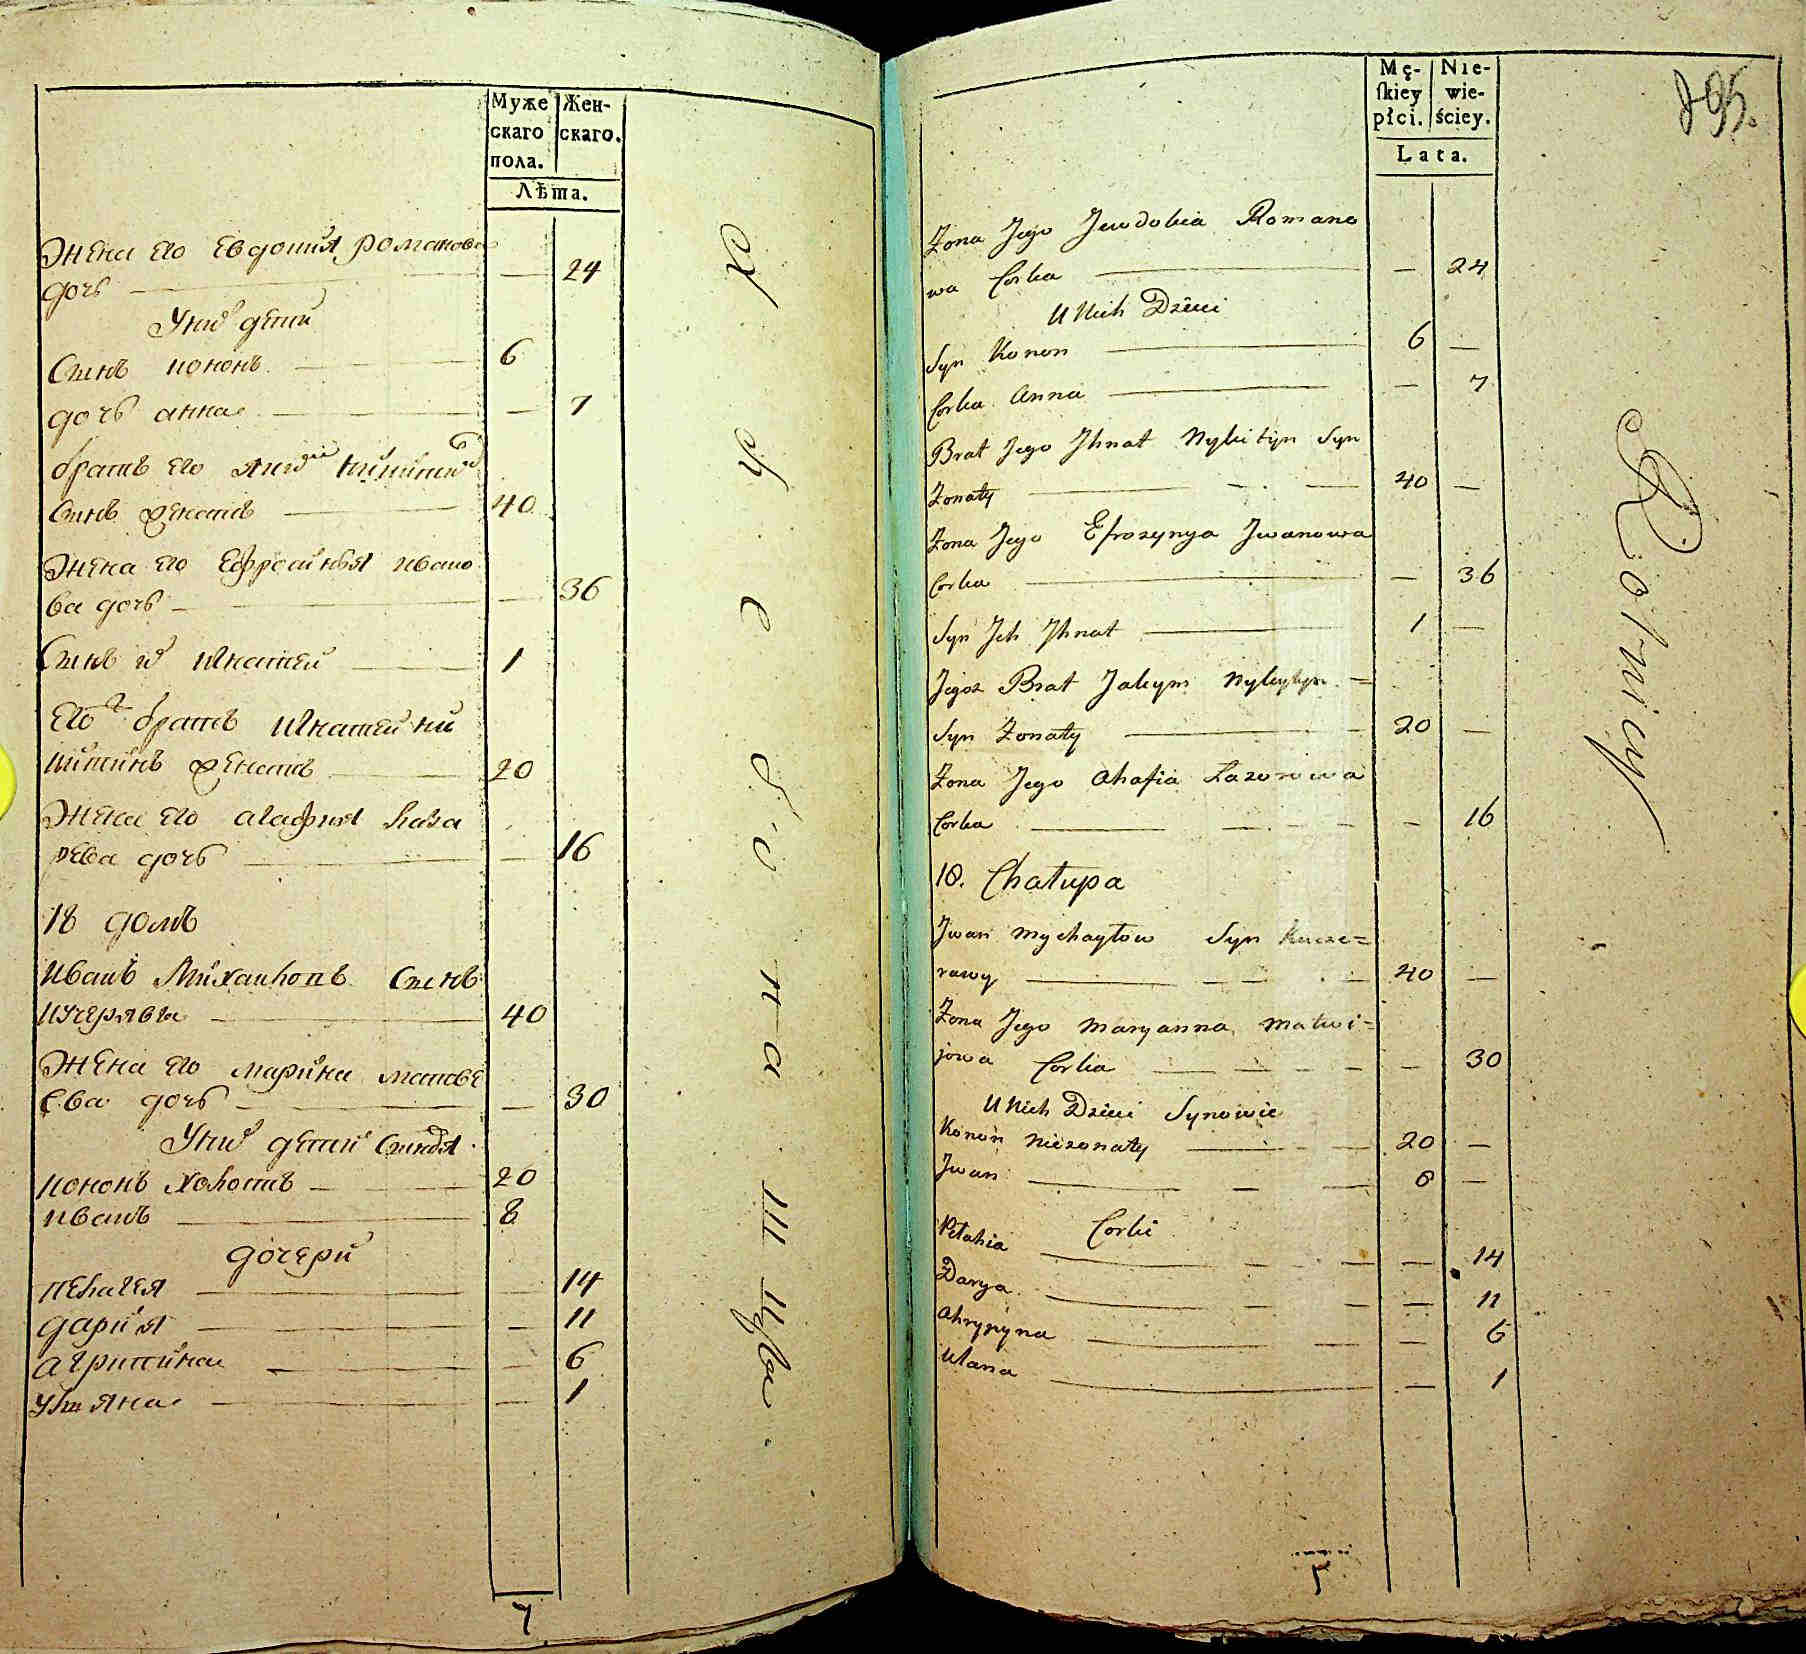 Муже
скаго
пола.
Жен-
скаго.
Лѣта.
жена его евдокия романова
дочь — 24
У них дети
Сынъ кононъ 6
дочь анна — 7
братъ его никитинъ
Сынъ женатъ 40
жена его ефросинья ивано
ва дочь — 36
Сынъ их игнатей 1
его братъ
никитинъ женатъ 20
жена его агафия лаза
рева дочь — 16
18 домъ
иванъ Михайловъ Сынъ
кучерявы 40
жена его марина матве
ева дочь — 30
У них дети Сыновья
кононъ холостъ 20
иванъ 8
дочери
пелагея — 14
дария — 11
агрипина — 6
ульяна — 1
7
Mę-
skiey
płci.
Nie-
wie-
ściey.
Lata.
895.
Zona Jego Jewdokia Romano
wa Corka — 24
U Nich Dzieci
Syn Konon 6 —
Corka Anna — 7
Brat Jego Ihnat Nykityn Syn
Zonaty 40 —
Zona Jego Efrozynya Jwanowa
Corka — 36
Syn Jch Jhnat 1 —
Jegoz Brat Jakym Nykytyn =
Syn Zonaty 20 —
Zona Jego Ahafia Lazorowa
Corka — 16
18. Chałupa
Jwan Mychayłow Syn Kucze=
rawy 40 —
Zona Jego Maryanna Matwi=
jowa Corka — 30
U Nich Dzieci Synowie
Konon Niezonaty 20 —
Jwan 8 —
Corki
Pełahia — 14
Darya — 11
Ahrypyna — 6
Ulana — 1
Rolnicy